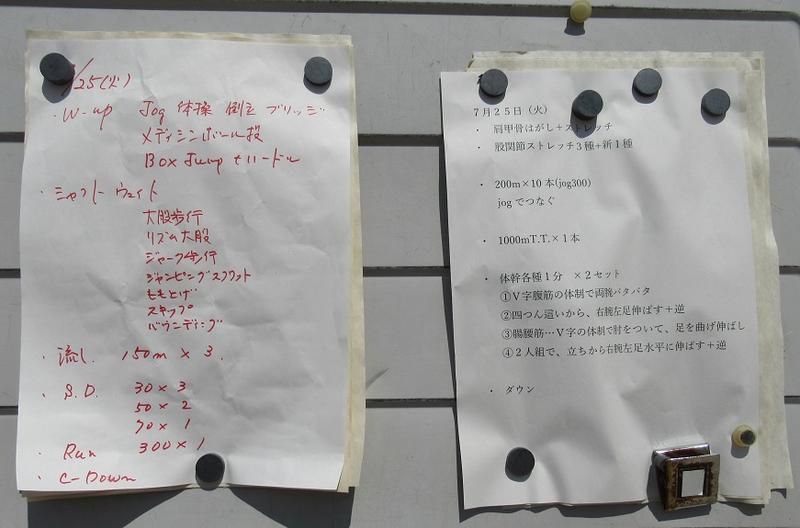 /25(火)
・W-up Jog 体操 倒立 ブリッジ
メディシンボール投
Box Jump +ハードル
・シャフトウェイト
大股歩行
リズム大股
ジャーク歩行
ジャンピングスクワット
ももとげ
スキップ
バウンディング
・流し 150m × 3.
・S.D. 30×3
50×2
70×1
・Run 300×1
・C-Down
7月25日(火)
・ 肩甲骨はがし+ストレッチ
・ 股関節ストレッチ3種+新1種
・ 200m×10本(jog300)
jogでつなぐ
・ 1000mT.T.×1本
・ 体幹各種1分 ×2セット
①V字腹筋の体制で両腕バタバタ
②四つん這いから、右腕左足伸ばす+逆
③腸腰筋…V字の体制で肘をついて、足を曲げ伸ばし
④2人組で、立ちから右腕左足水平に伸ばす+逆
・ ダウン